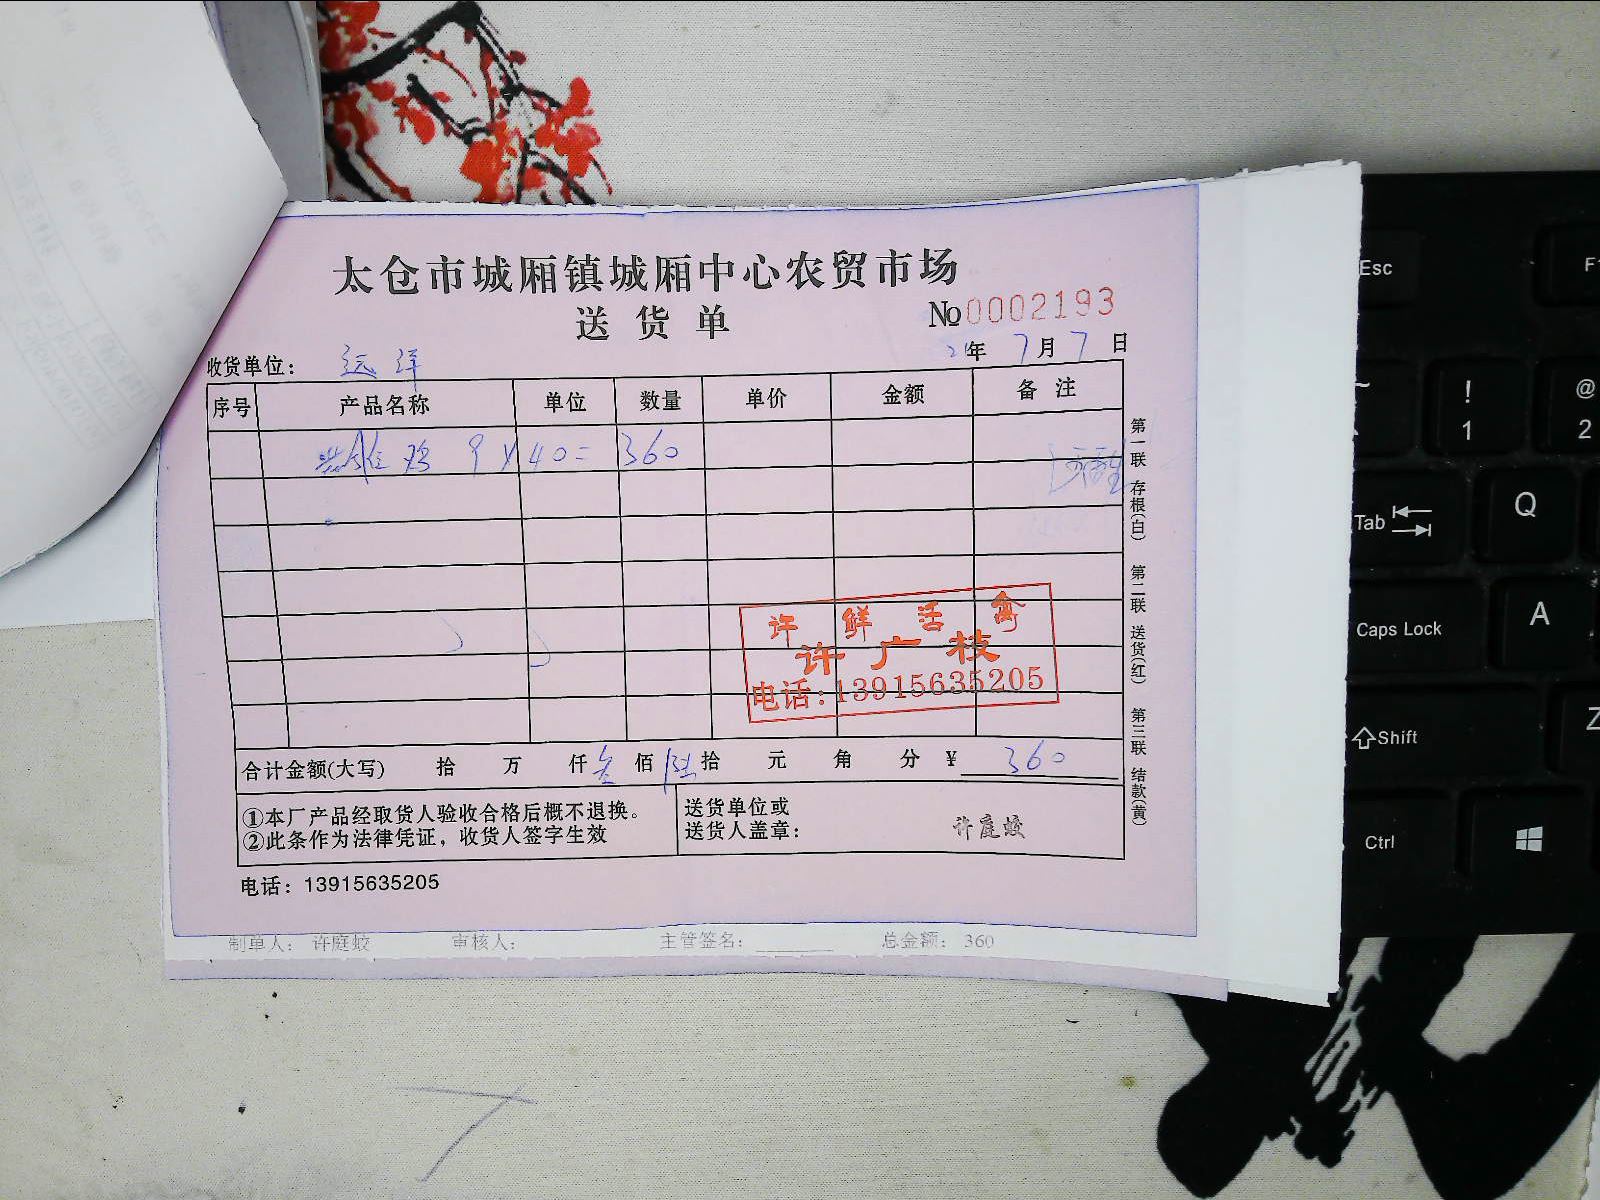 太仓市城厢镇城厢中心农贸市场
送货单
№0002193
收货单位： 远洋
21年 7月 7日
序号 产品名称 单位 数量 单价 金额 备注
鸡 9 X 40 = 360
第一联 存根(白) 第二联 送货(红) 第三联 结款(黄)
许 鲜 活 禽
许广枝
电话:13915635205
合计金额(大写) 拾 万 仟 叁 佰 陆 拾 元 角 分 ¥ 360
①本厂产品经取货人验收合格后概不退换。
②此条作为法律凭证，收货人签字生效
送货单位或
送货人盖章： 许庭蛟
电话：13915635205
制单人： 许庭蛟 审核人： 主管签名：________ 总金额： 360
Esc
F1
~
!
1
@
2
Tab
Q
Caps Lock
A
Shift
Z
Ctrl